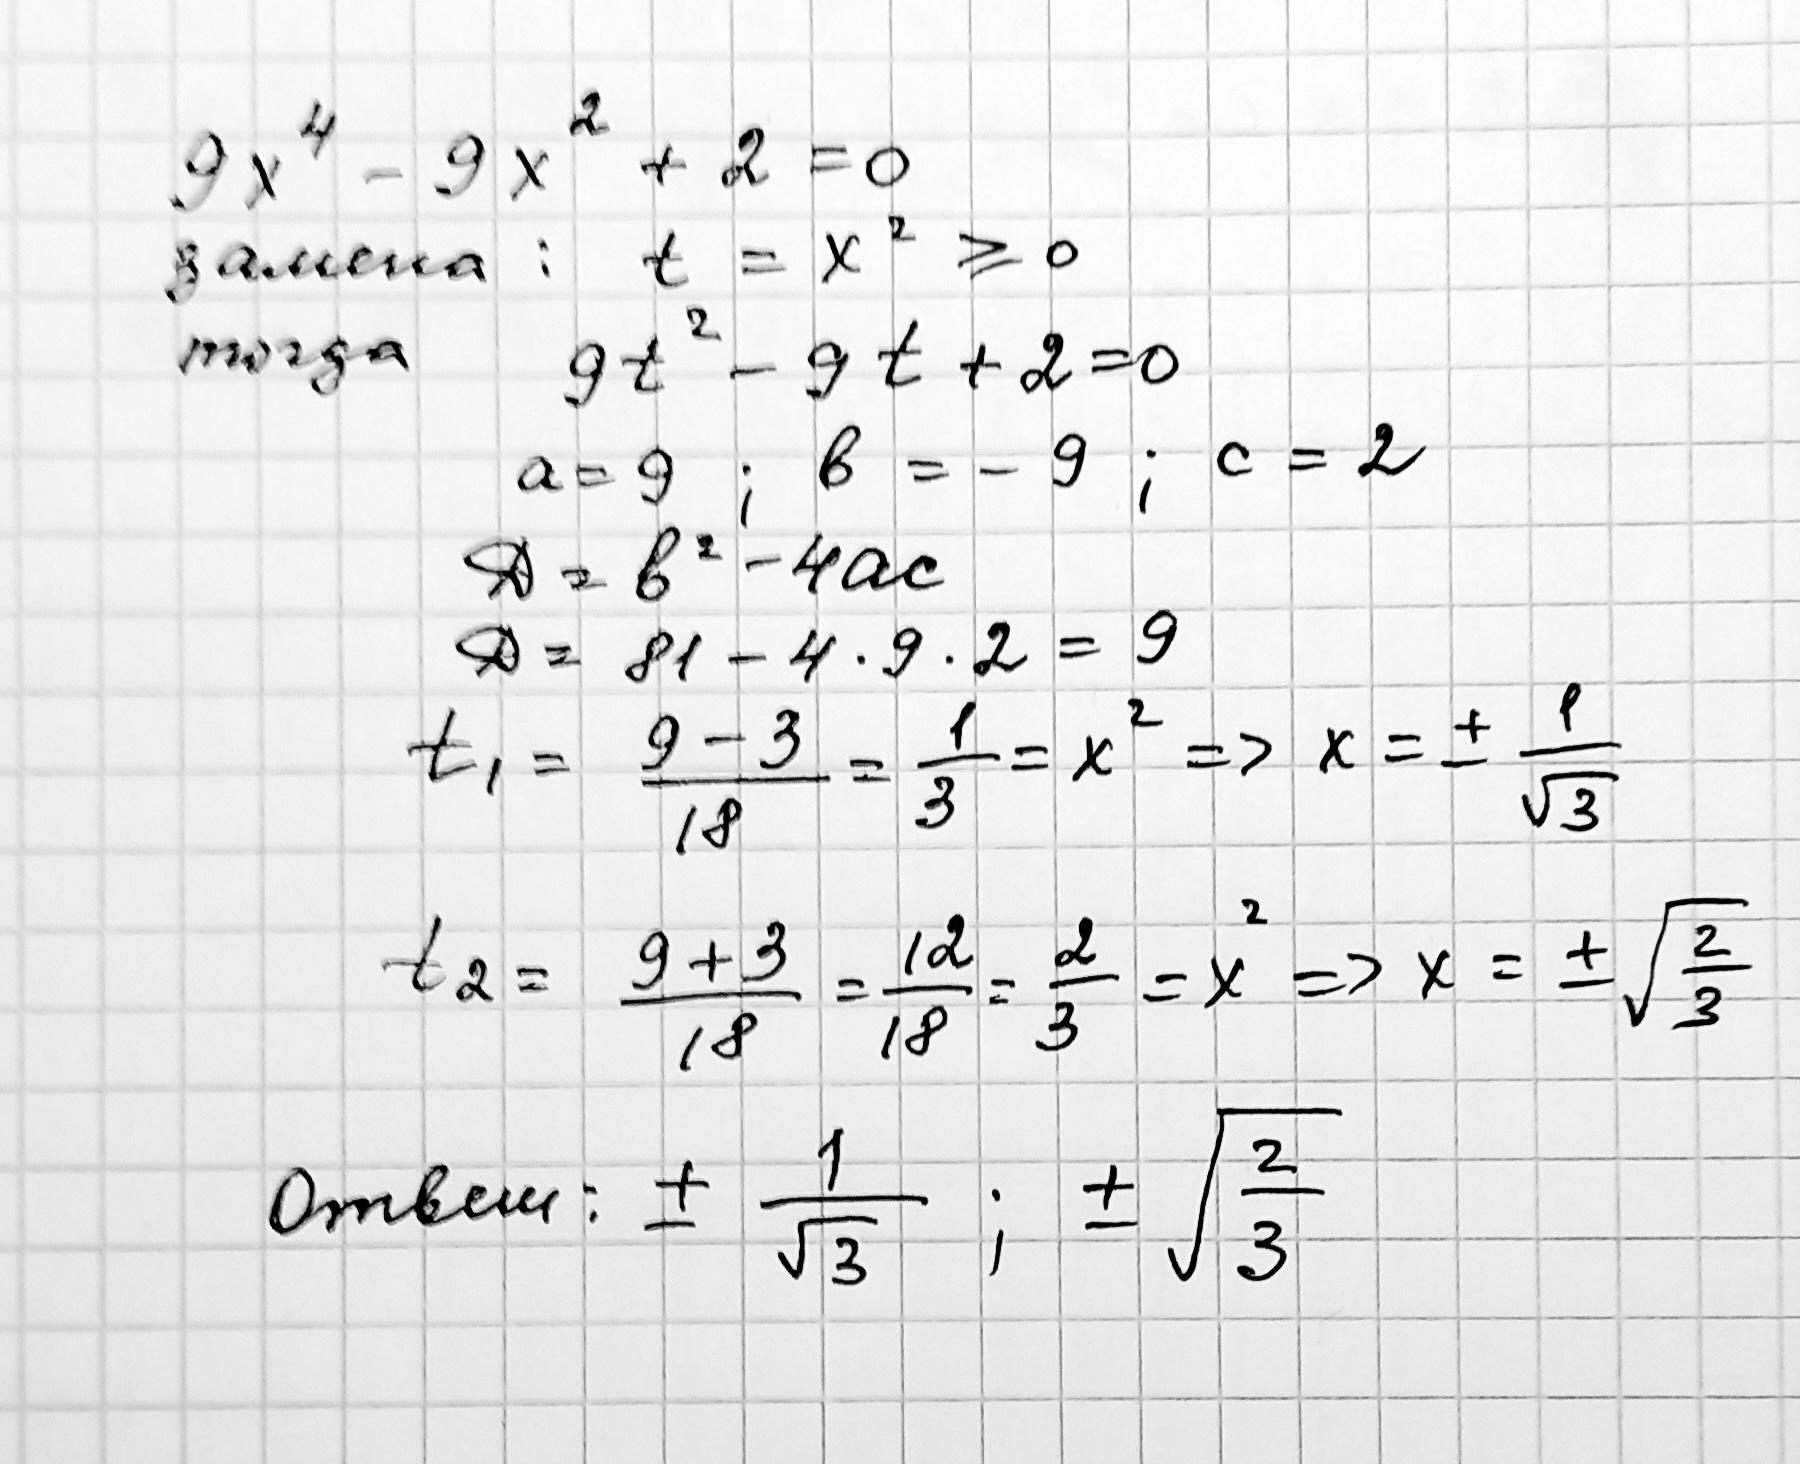 9x⁴ - 9x² + 2 = 0
замена : t = x² ⩾ 0
тогда 9t² - 9t + 2 = 0
a = 9 ; b = - 9 ; c = 2
D = b² - 4ac
D = 81 - 4 · 9 · 2 = 9
t₁ = (9 - 3)/18 = 1/3 = x² => x = ± 1/√3
t₂ = (9 + 3)/18 = 12/18 = 2/3 = x² => x = ± √(2/3)
Ответ : ± 1/√3 ; ± √(2/3)